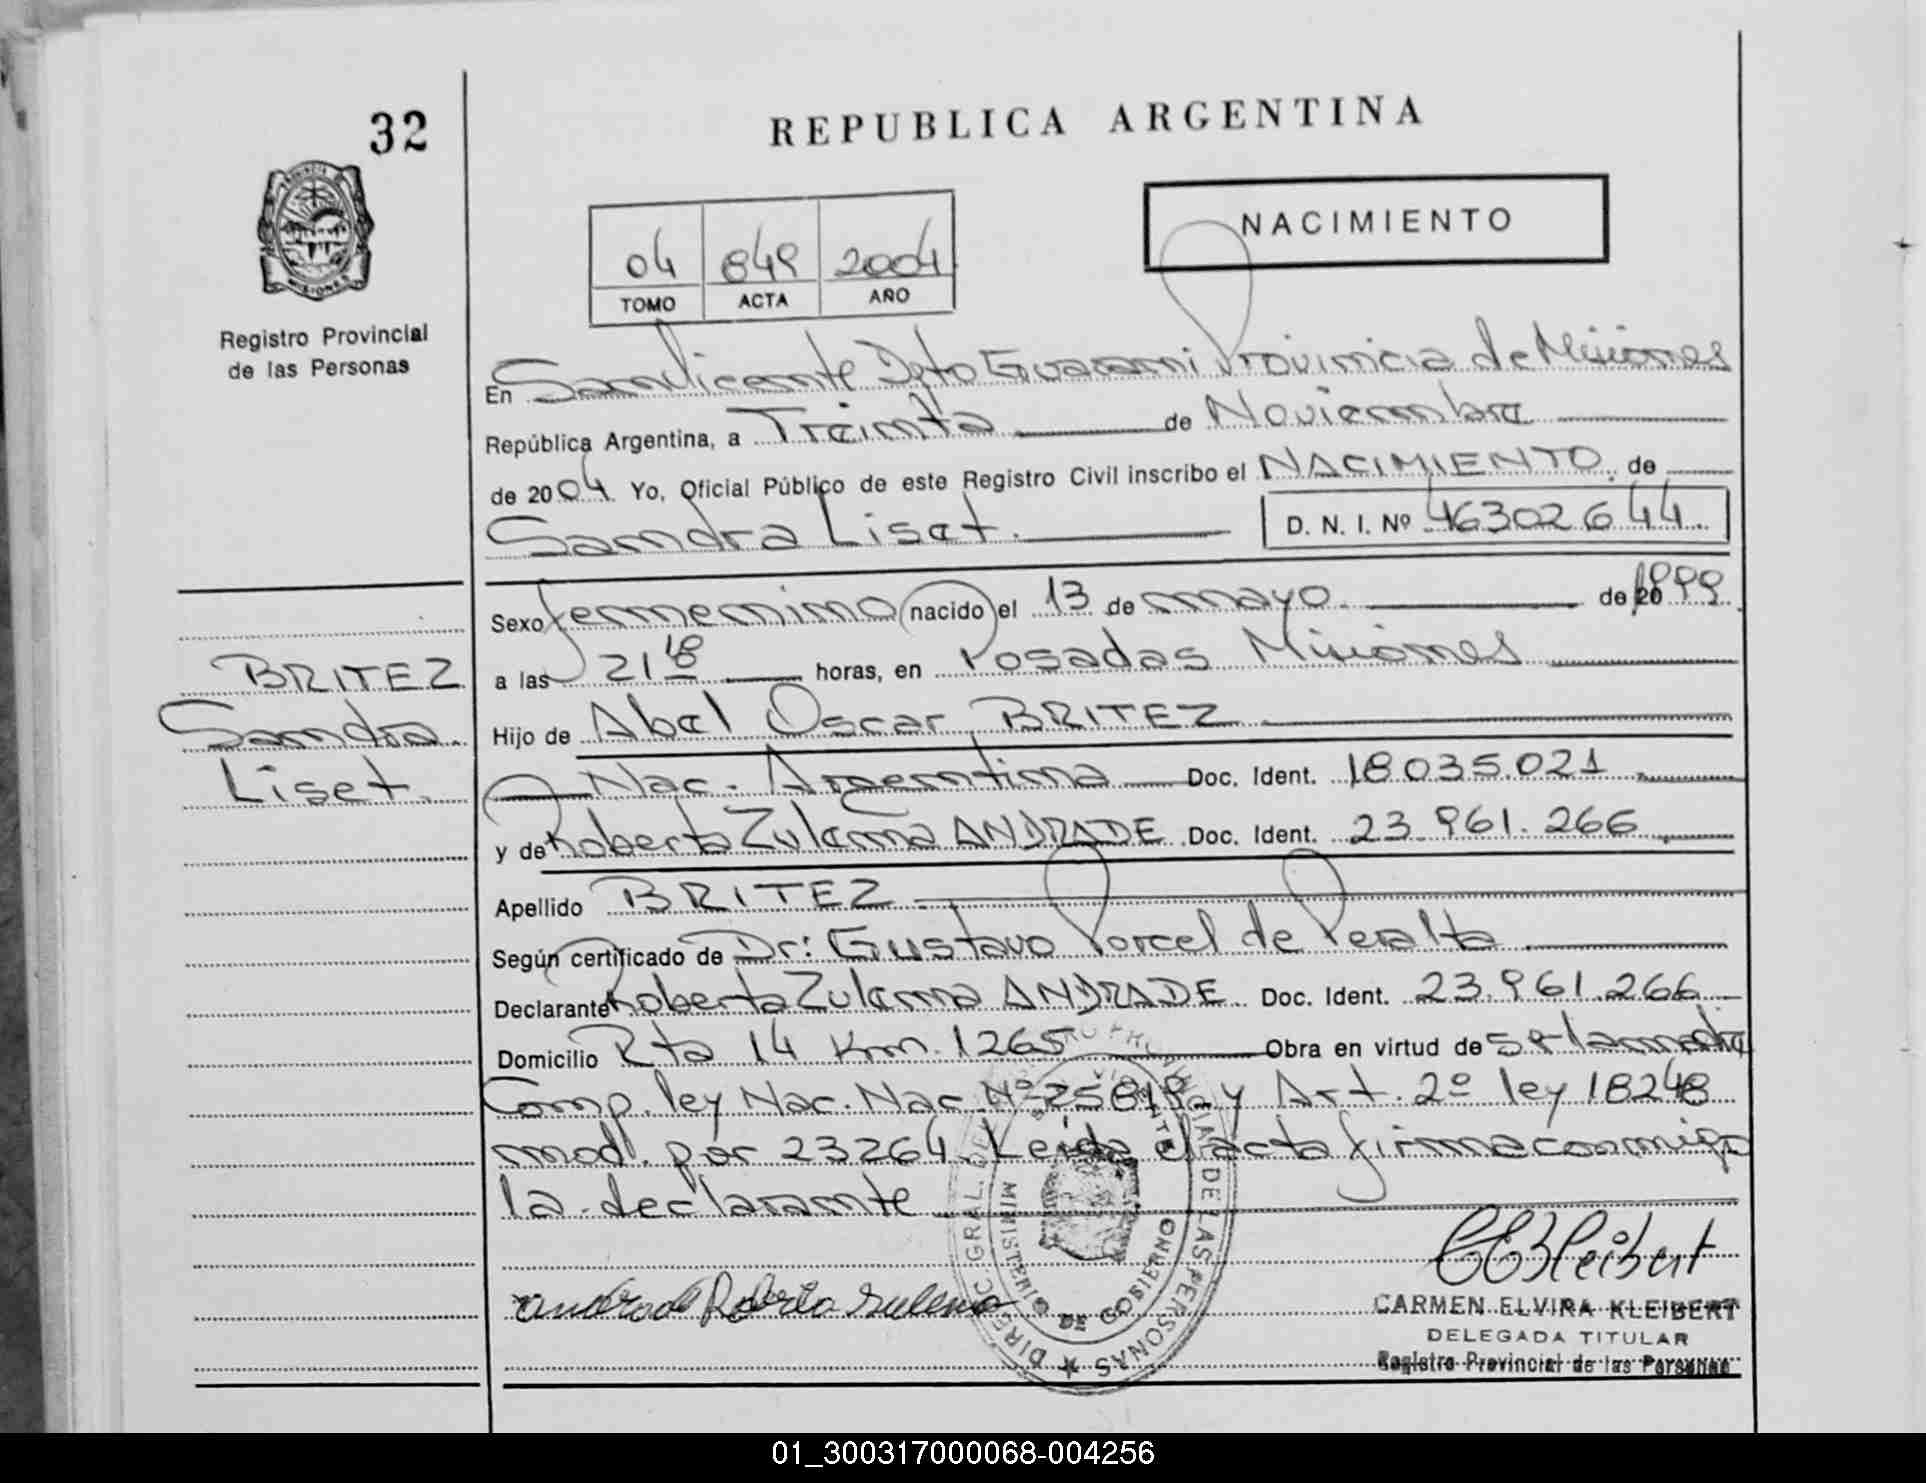 32
REPUBLICA ARGENTINA
NACIMIENTO
04 849 2004
TOMO ACTA AÑO
Registro Provincial
de las Personas
En San Vicente Dpto Guarani Provincia de Misiones
República Argentina, a Treinta de Noviembre
de 2004 Yo, Oficial Público de este Registro Civil inscribo el NACIMIENTO de
Sandra Liset. D. N. I. Nº 46302644
Sexo femenino nacido el 13 de mayo de 1999
a las 21 18 horas, en Posadas Misiones
Hijo de Abel Oscar BRITEZ
Nac. Argentina Doc. Ident. 18.035.021
y de Roberta Zulema ANDRADE Doc. Ident. 23.961.266
Apellido BRITEZ
Según certificado de Dr: Gustavo Porcel de Peralta
Declarante Roberta Zulema ANDRADE Doc. Ident. 23.961.266
Domicilio Rta 14 Km. 1265 Obra en virtud de
Comp. ley Nac. Nac. Nº 25819 y Art. 2º ley 18248
mod. por 23264. Leida el acta firma conmigo
la declarante
BRITEZ
Sandra
Liset.
Andrade Roberta Sulema
CEKleibert
CARMEN ELVIRA KLEIBERT
DELEGADA TITULAR
Registro Provincial de las Personas
DE LAS PERSONAS
MINISTERIO DE GOBIERNO
01_300317000068-004256